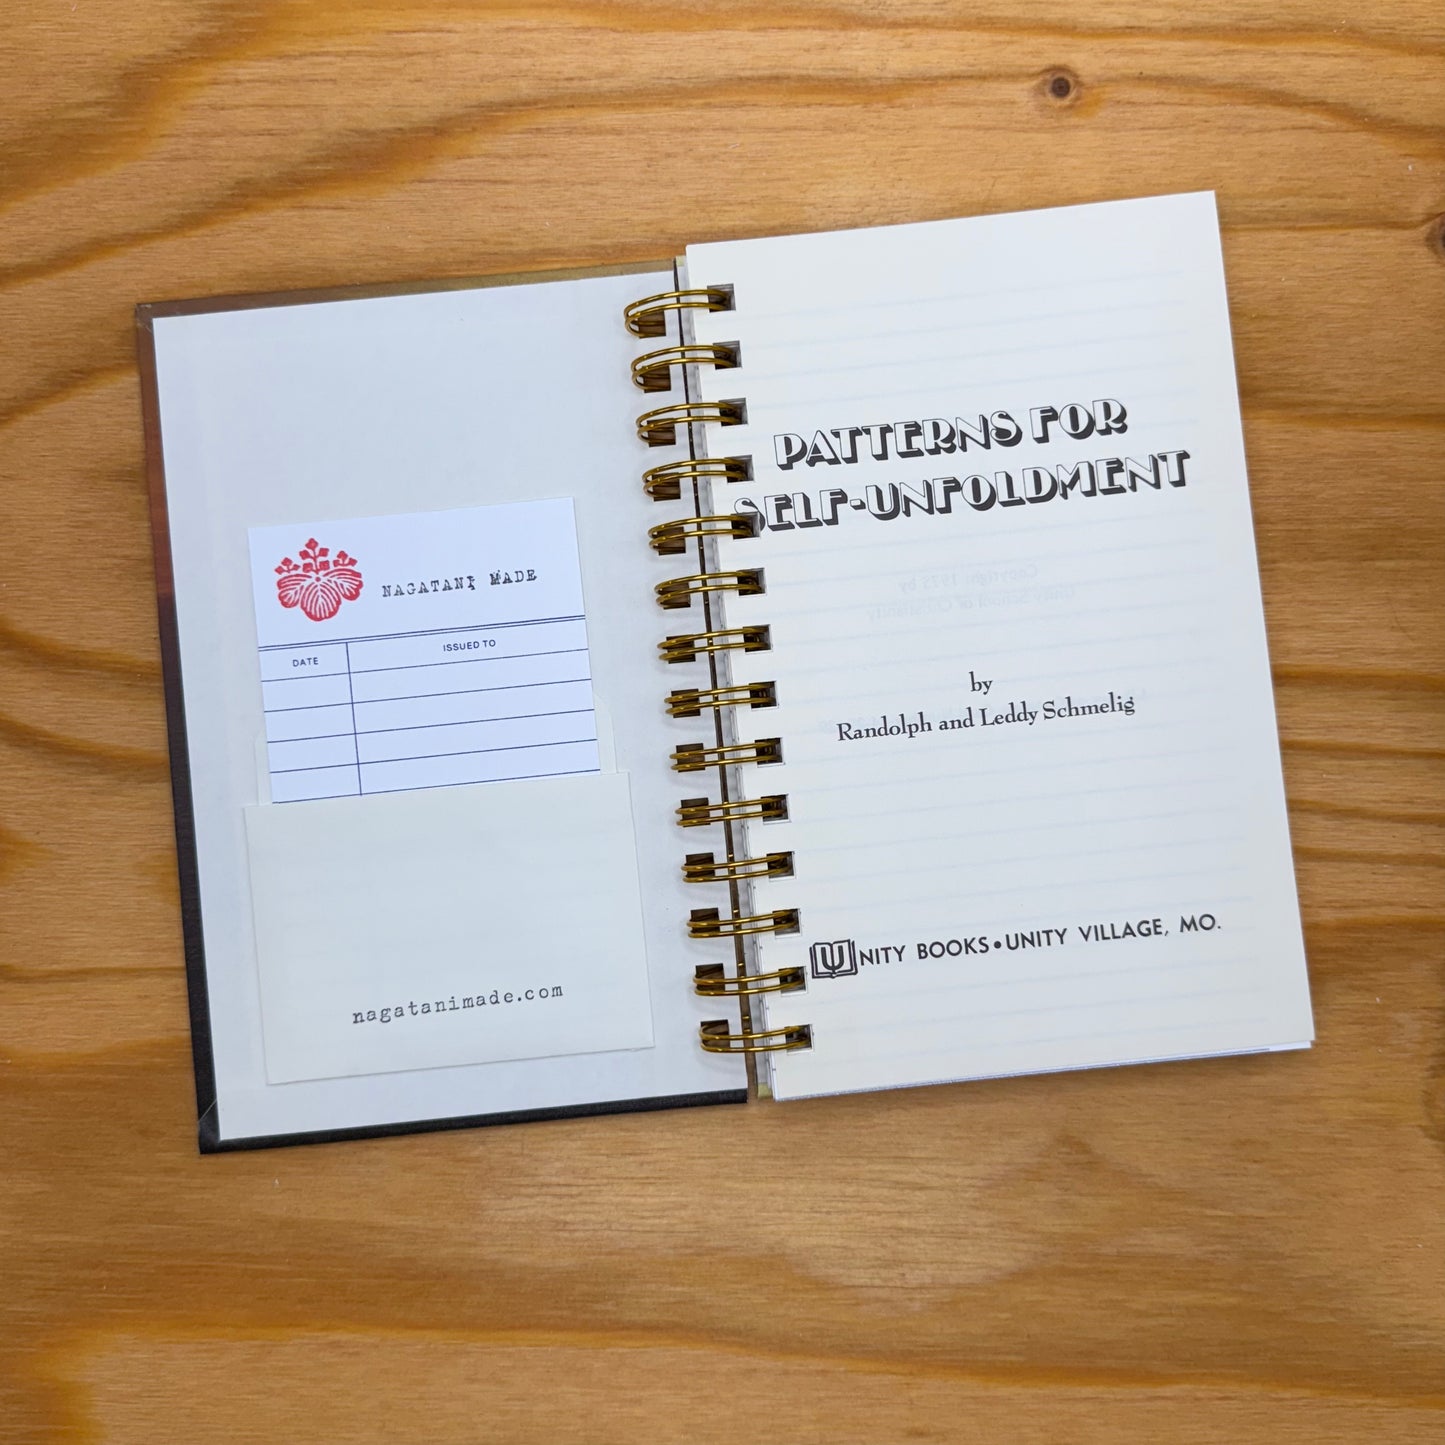 NAGATANI MADE
DATE
ISSUED TO
nagatanimade.com
PATTERNS FOR
SELF-UNFOLDMENT
by
Randolph and Leddy Schmelig
UNITY BOOKS•UNITY VILLAGE, MO.